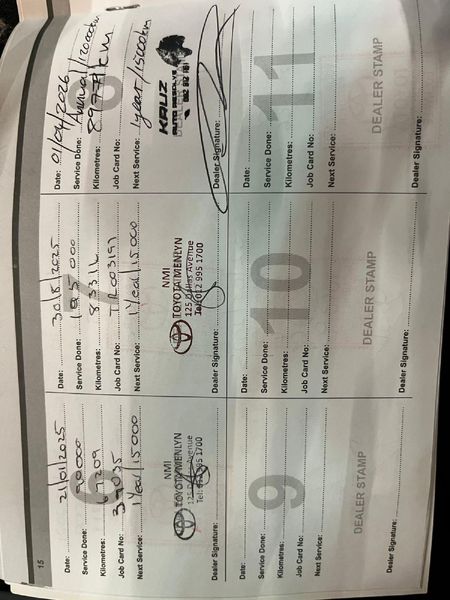 15
Date: 21/01/2025
Service Done:
Kilometres: 67209
Job Card No: 39035
Next Service: 1 Year/15 000
NMI
TOYOTA MENLYN
125 Dallas Avenue
Tel: 012 995 1700
Dealer Signature:
Date: 30/8/2025
Service Done: 195 000
Kilometres: 83316
Job Card No:
Next Service: 1 Year/15.000
NMI
TOYOTA MENLYN
125 Dallas Avenue
Tel: 012 995 1700
Dealer Signature:
Date: 01/04/2026
Service Done: Annual/120000km
Kilometres: km
Job Card No:
Next Service: 1 year/15000km
KRUZ
DEALER STAMP
Dealer Signature:
9
Date:
Service Done:
Kilometres:
Job Card No:
Next Service:
DEALER STAMP
Dealer Signature:
10
Date:
Service Done:
Kilometres:
Job Card No:
Next Service:
DEALER STAMP
Dealer Signature:
11
Date:
Service Done:
Kilometres:
Job Card No:
Next Service:
DEALER STAMP
Dealer Signature: